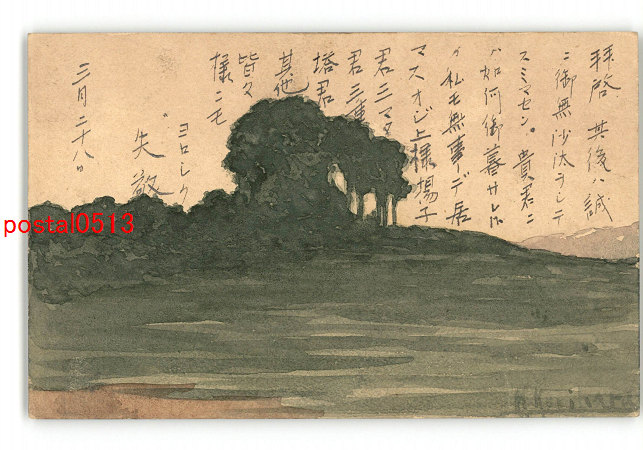 拝啓 其後ハ誠
ニ御無沙汰ヲシテ
スミマセン。貴君ニ
ハ如何御暮サレルカ
私モ無事デ居
マス オジ上様 揚子
君 三マタ
君 三重
塔君
其他
皆々
様ニモ
ヨロシク
失敬
三月二十八日
postal0513